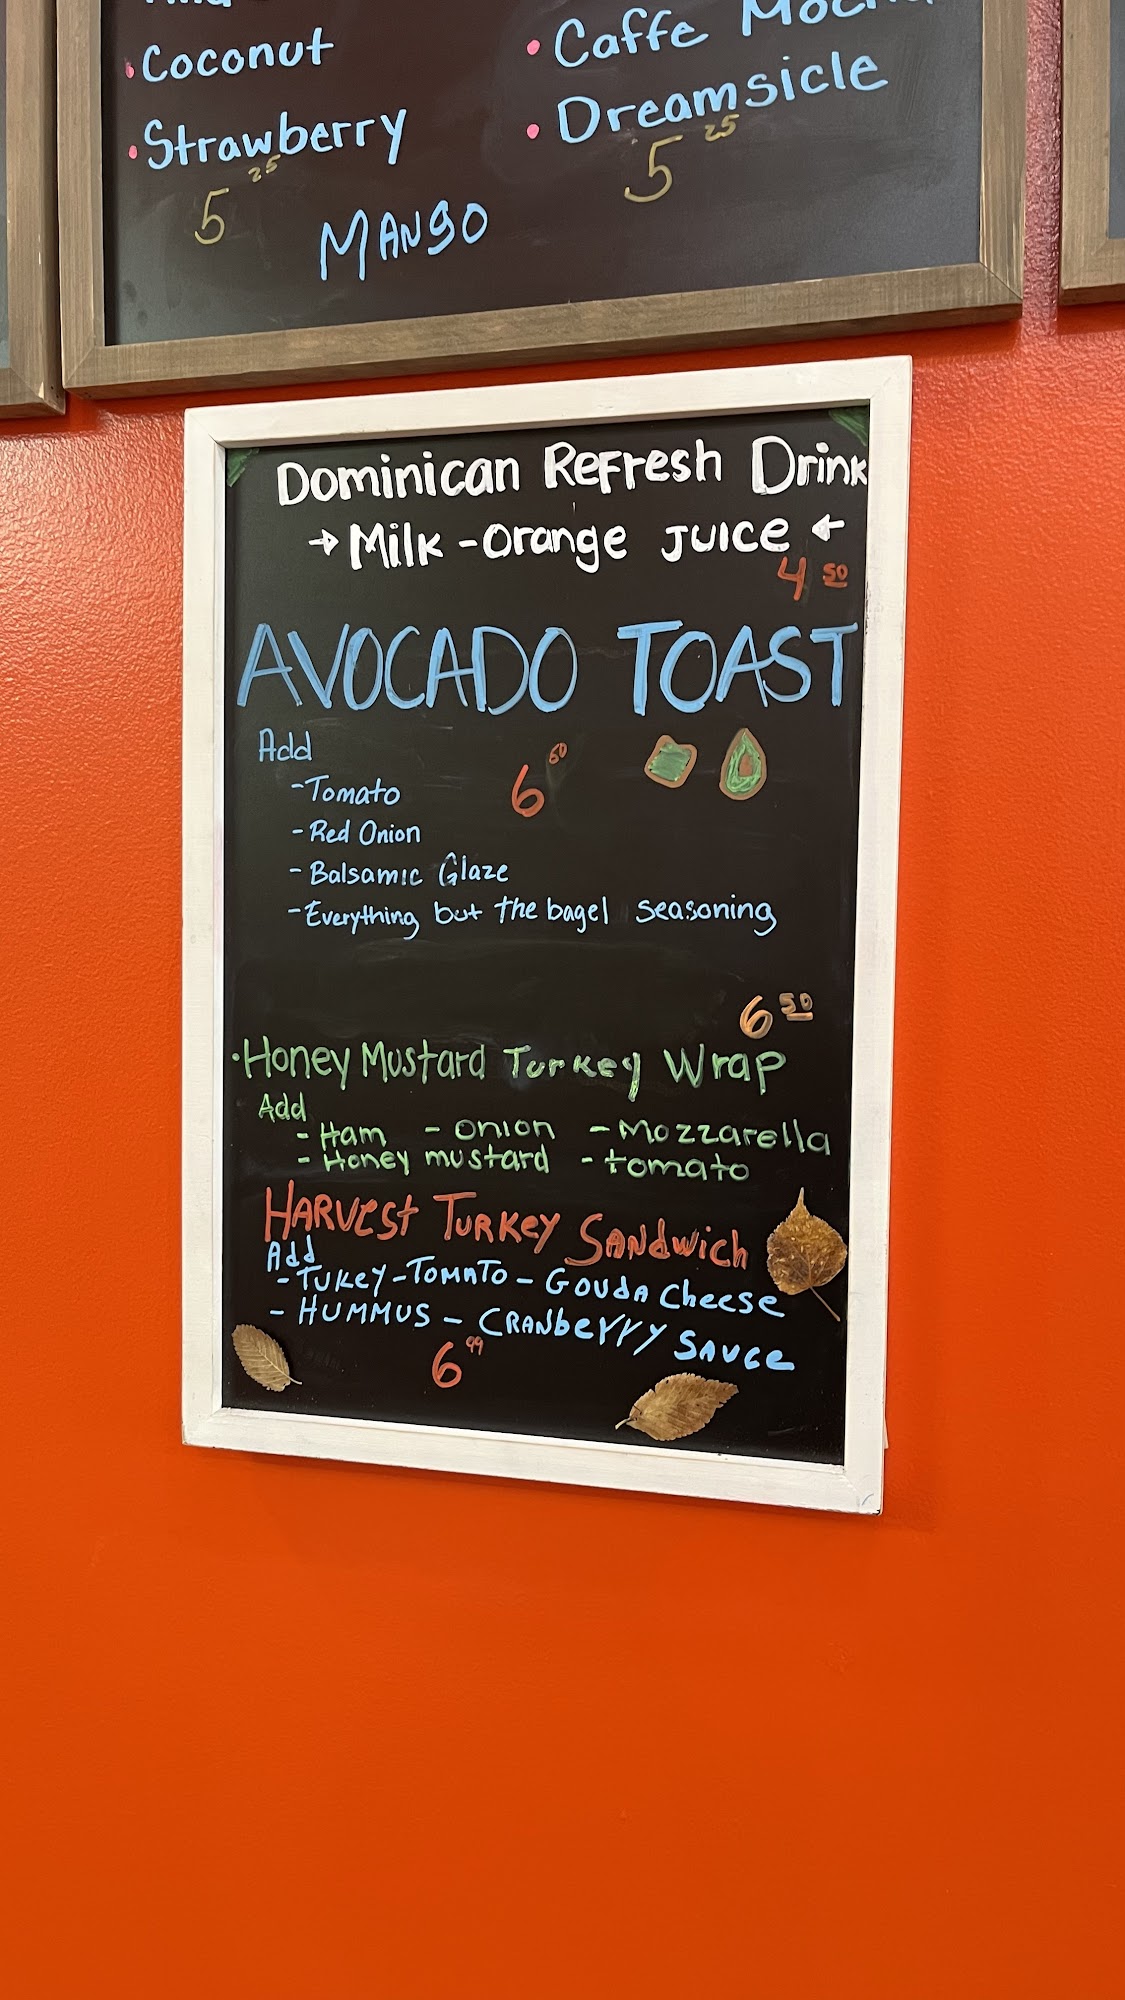 Coconut
Strawberry
5 25
Caffe
Dreamsicle
5 25
MANgO
Dominican Refresh Drink
→ Milk - Orange JUICE ←
4 50
AVOCADO TOAST
Add
6 50
- Tomato
- Red Onion
- Balsamic Glaze
- Everything but the bagel seasoning
6 50
• Honey Mustard Turkey Wrap
Add
- Ham - onion - Mozzarella
- Honey mustard - tomato
HARVEST TURKEY SANDWICH
Add
- TUKEY - TOMATO - GOUDA Cheese
- HUMMUS - CRANbERRY SAUCE
6 99